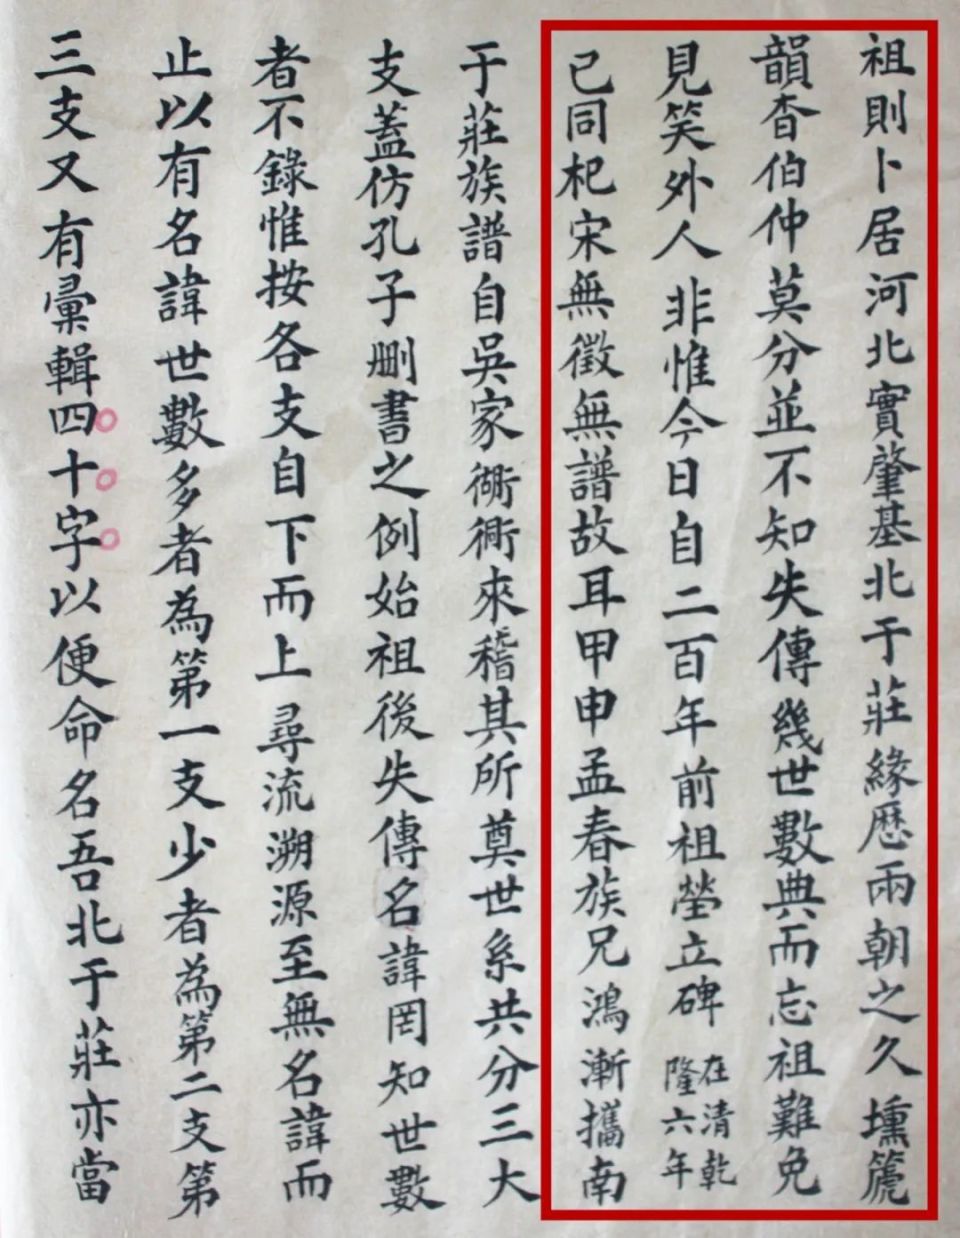 祖則卜居河北實肇基北于莊緣歷兩朝之久壎篪
韻杳伯仲莫分並不知失傳幾世數典而忘祖難免
見笑外人非惟今日自二百年前祖塋立碑在清乾隆六年
已同杞宋無徵無譜故耳甲申孟春族兄鴻漸攜南
于莊族譜自吳家衚衕來稽其所奠世系共分三大
支蓋仿孔子刪書之例始祖後失傳名諱罔知世數
者不錄惟按各支自下而上尋流溯源至無名諱而
止以有名諱世數多者為第一支少者為第二支第
三支又有彙輯四十字以便命名吾北于莊亦當